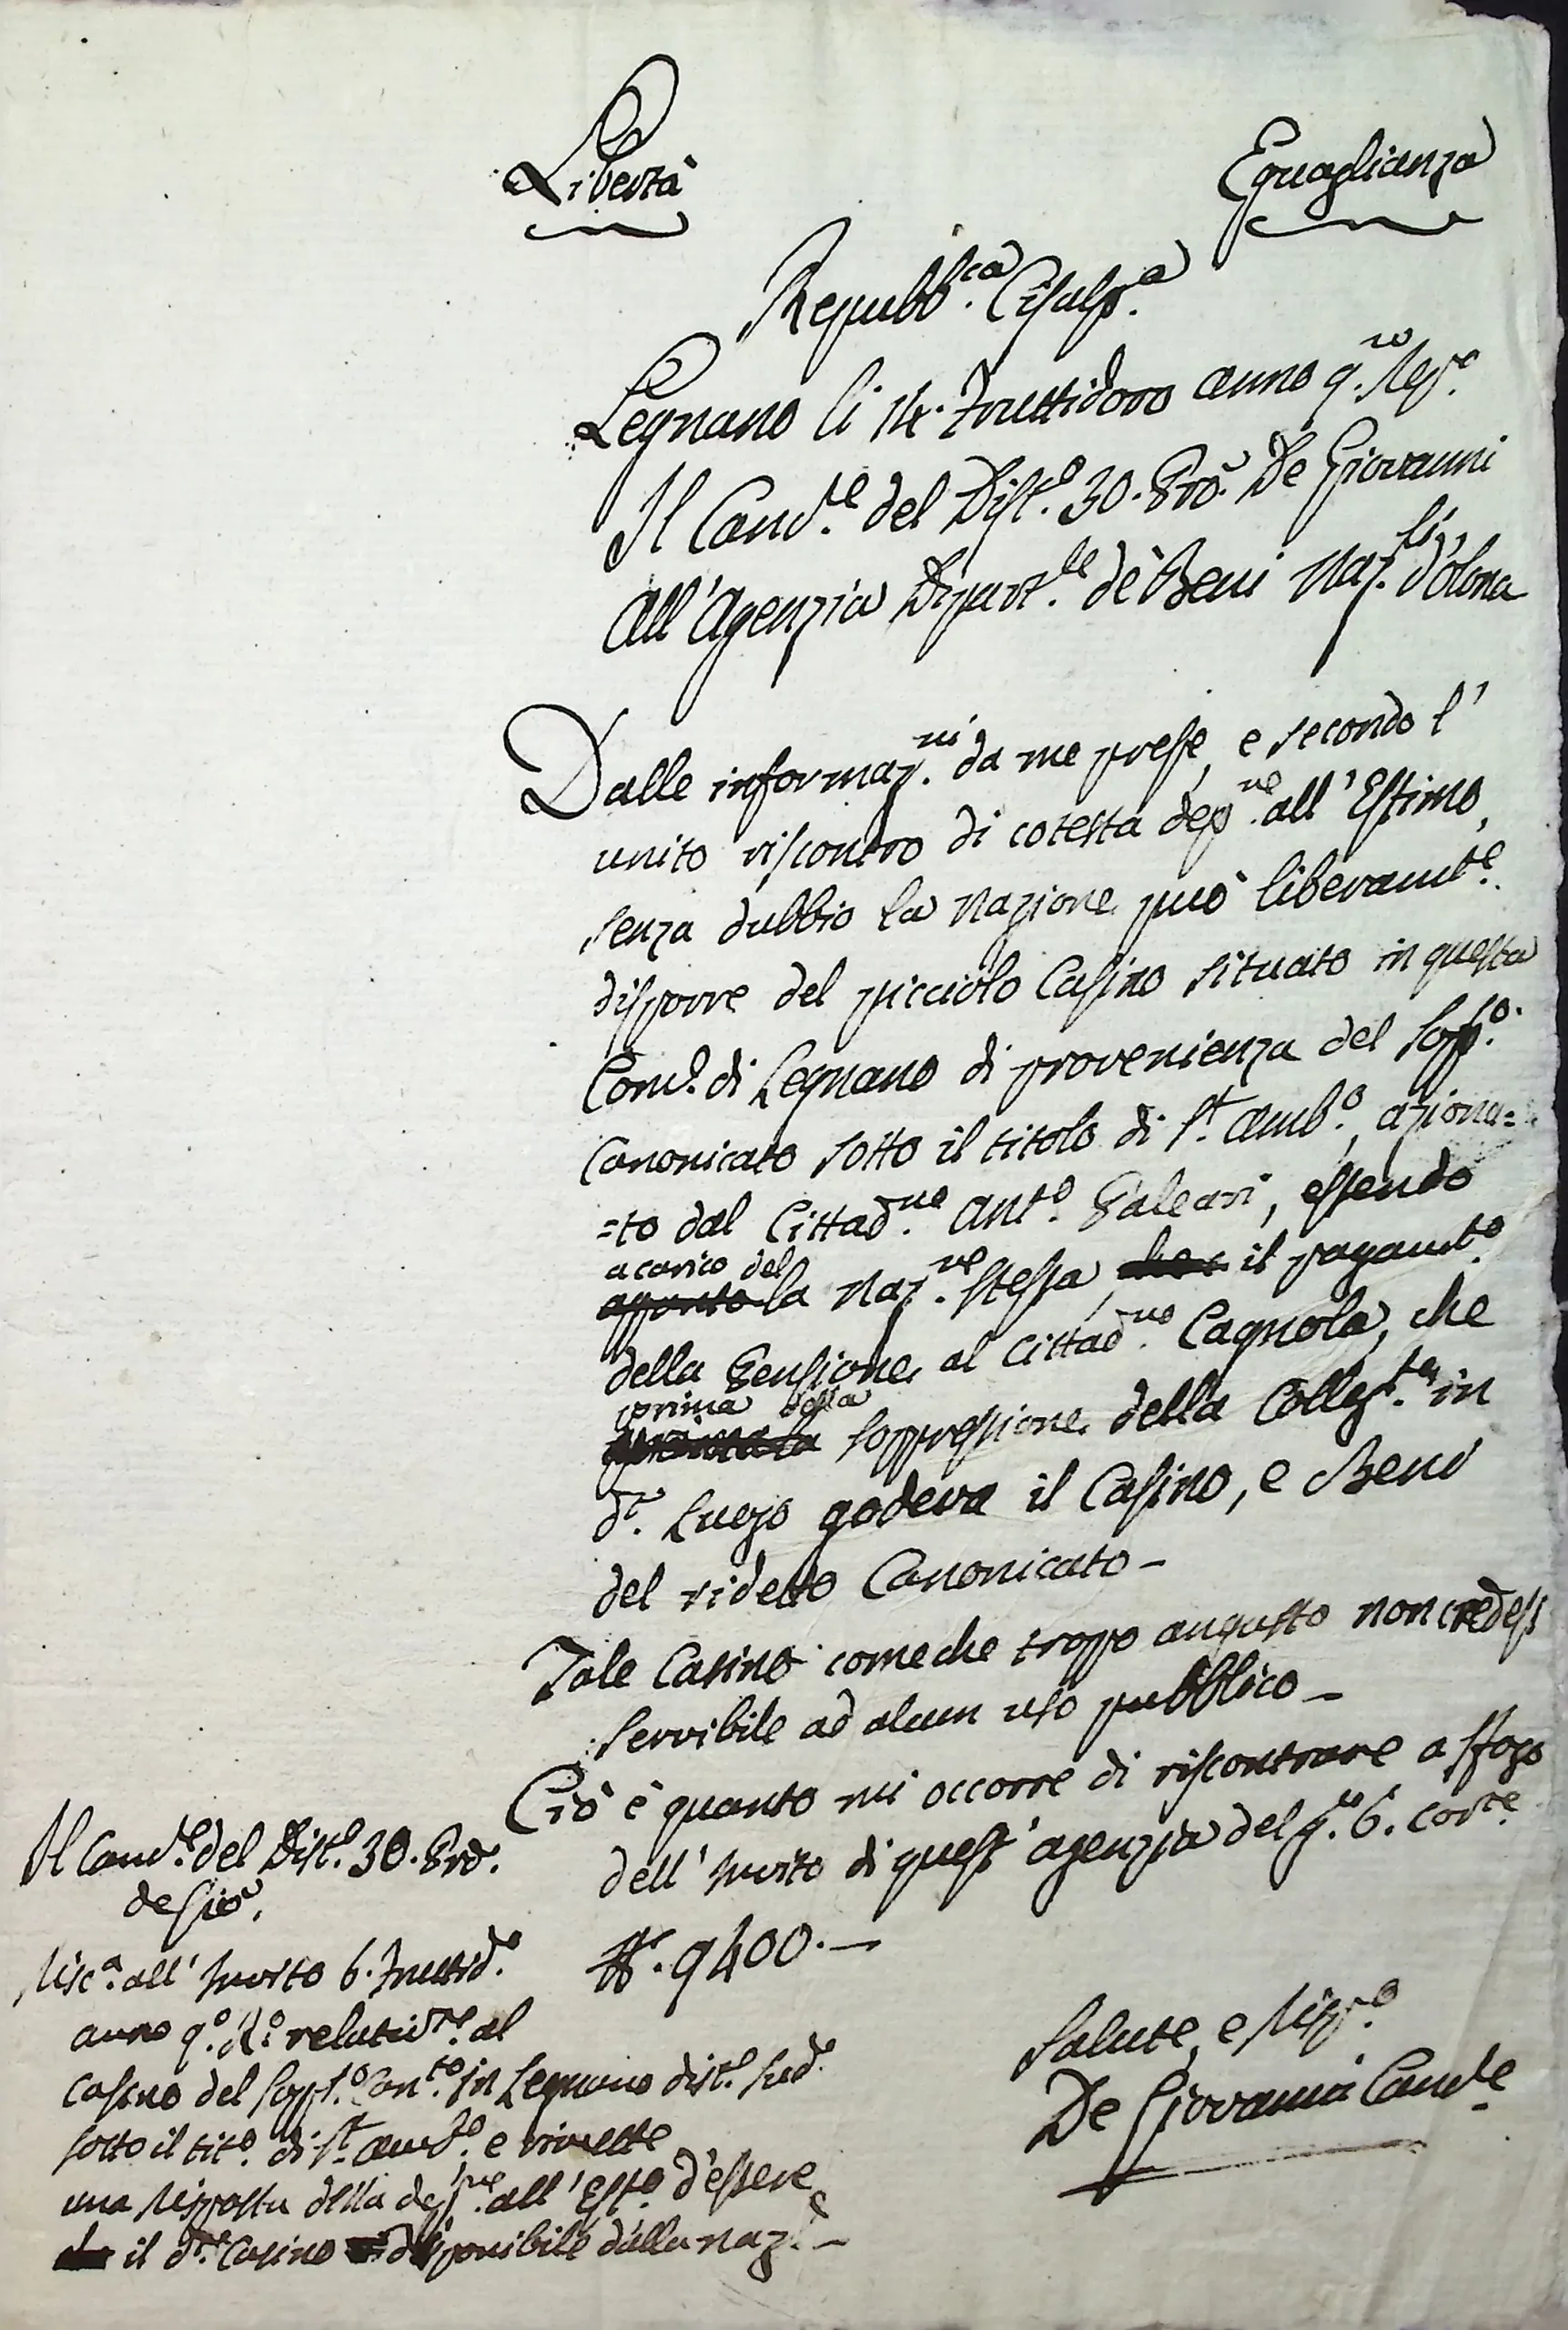 Libertà Eguaglianza
Repubb.ca Cisalp.a
Legnano li 14. Fruttidoro anno q.to Rep.o
Il Canc.e del Dist.o 30. Pro. De Giovanni
All'Agenzia Dipart.le de' Beni Naz.li d'olona
Dalle informaz.ni da me prese, e secondo l'
unito riscontro di cotesta dep.ne all'Estimo,
senza dubbio la Nazione può liberam.te
disporre del picciolo Casino situato in questa
Com.e di Legnano di provenienza del Sopp.o
Canonicato sotto il titolo di S.t Amb.o, aziona=
=to dal Cittad.no Ant.o Galeari, essendo
a carico del
la Naz.ne stessa, il pagam.to
della Pensione al Cittad.no Cagnola, che
prima della
soppressione della Colleg.ta in
d.o Luogo godeva il Casino, e Beni
del ridetto Canonicato -
Tale Casino comeche troppo angusto non credesi
servibile ad alcun uso pubblico -
Ciò è quanto mi occorre di riscontrare a sfogo
dell'Invito di quest'agenzia del g.no 6. corr.te
N. 9400. -
Salute, e Risp.o
De Giovanni Canc.e
Il Canc.e del Dist.o 30. Pro.
de Gio.
Risc.a all'Invito 6. Fruttid.o
anno q.o R.o relativ.te al
Casino del Sopp.o Can.to in Legnano dist.o sud.o
sotto il tit.o di S.t Amb.o e rimette
una Risposta della dep.ne all'Est.o d'essere
il d.o Casino disponibile dalla naz.e -